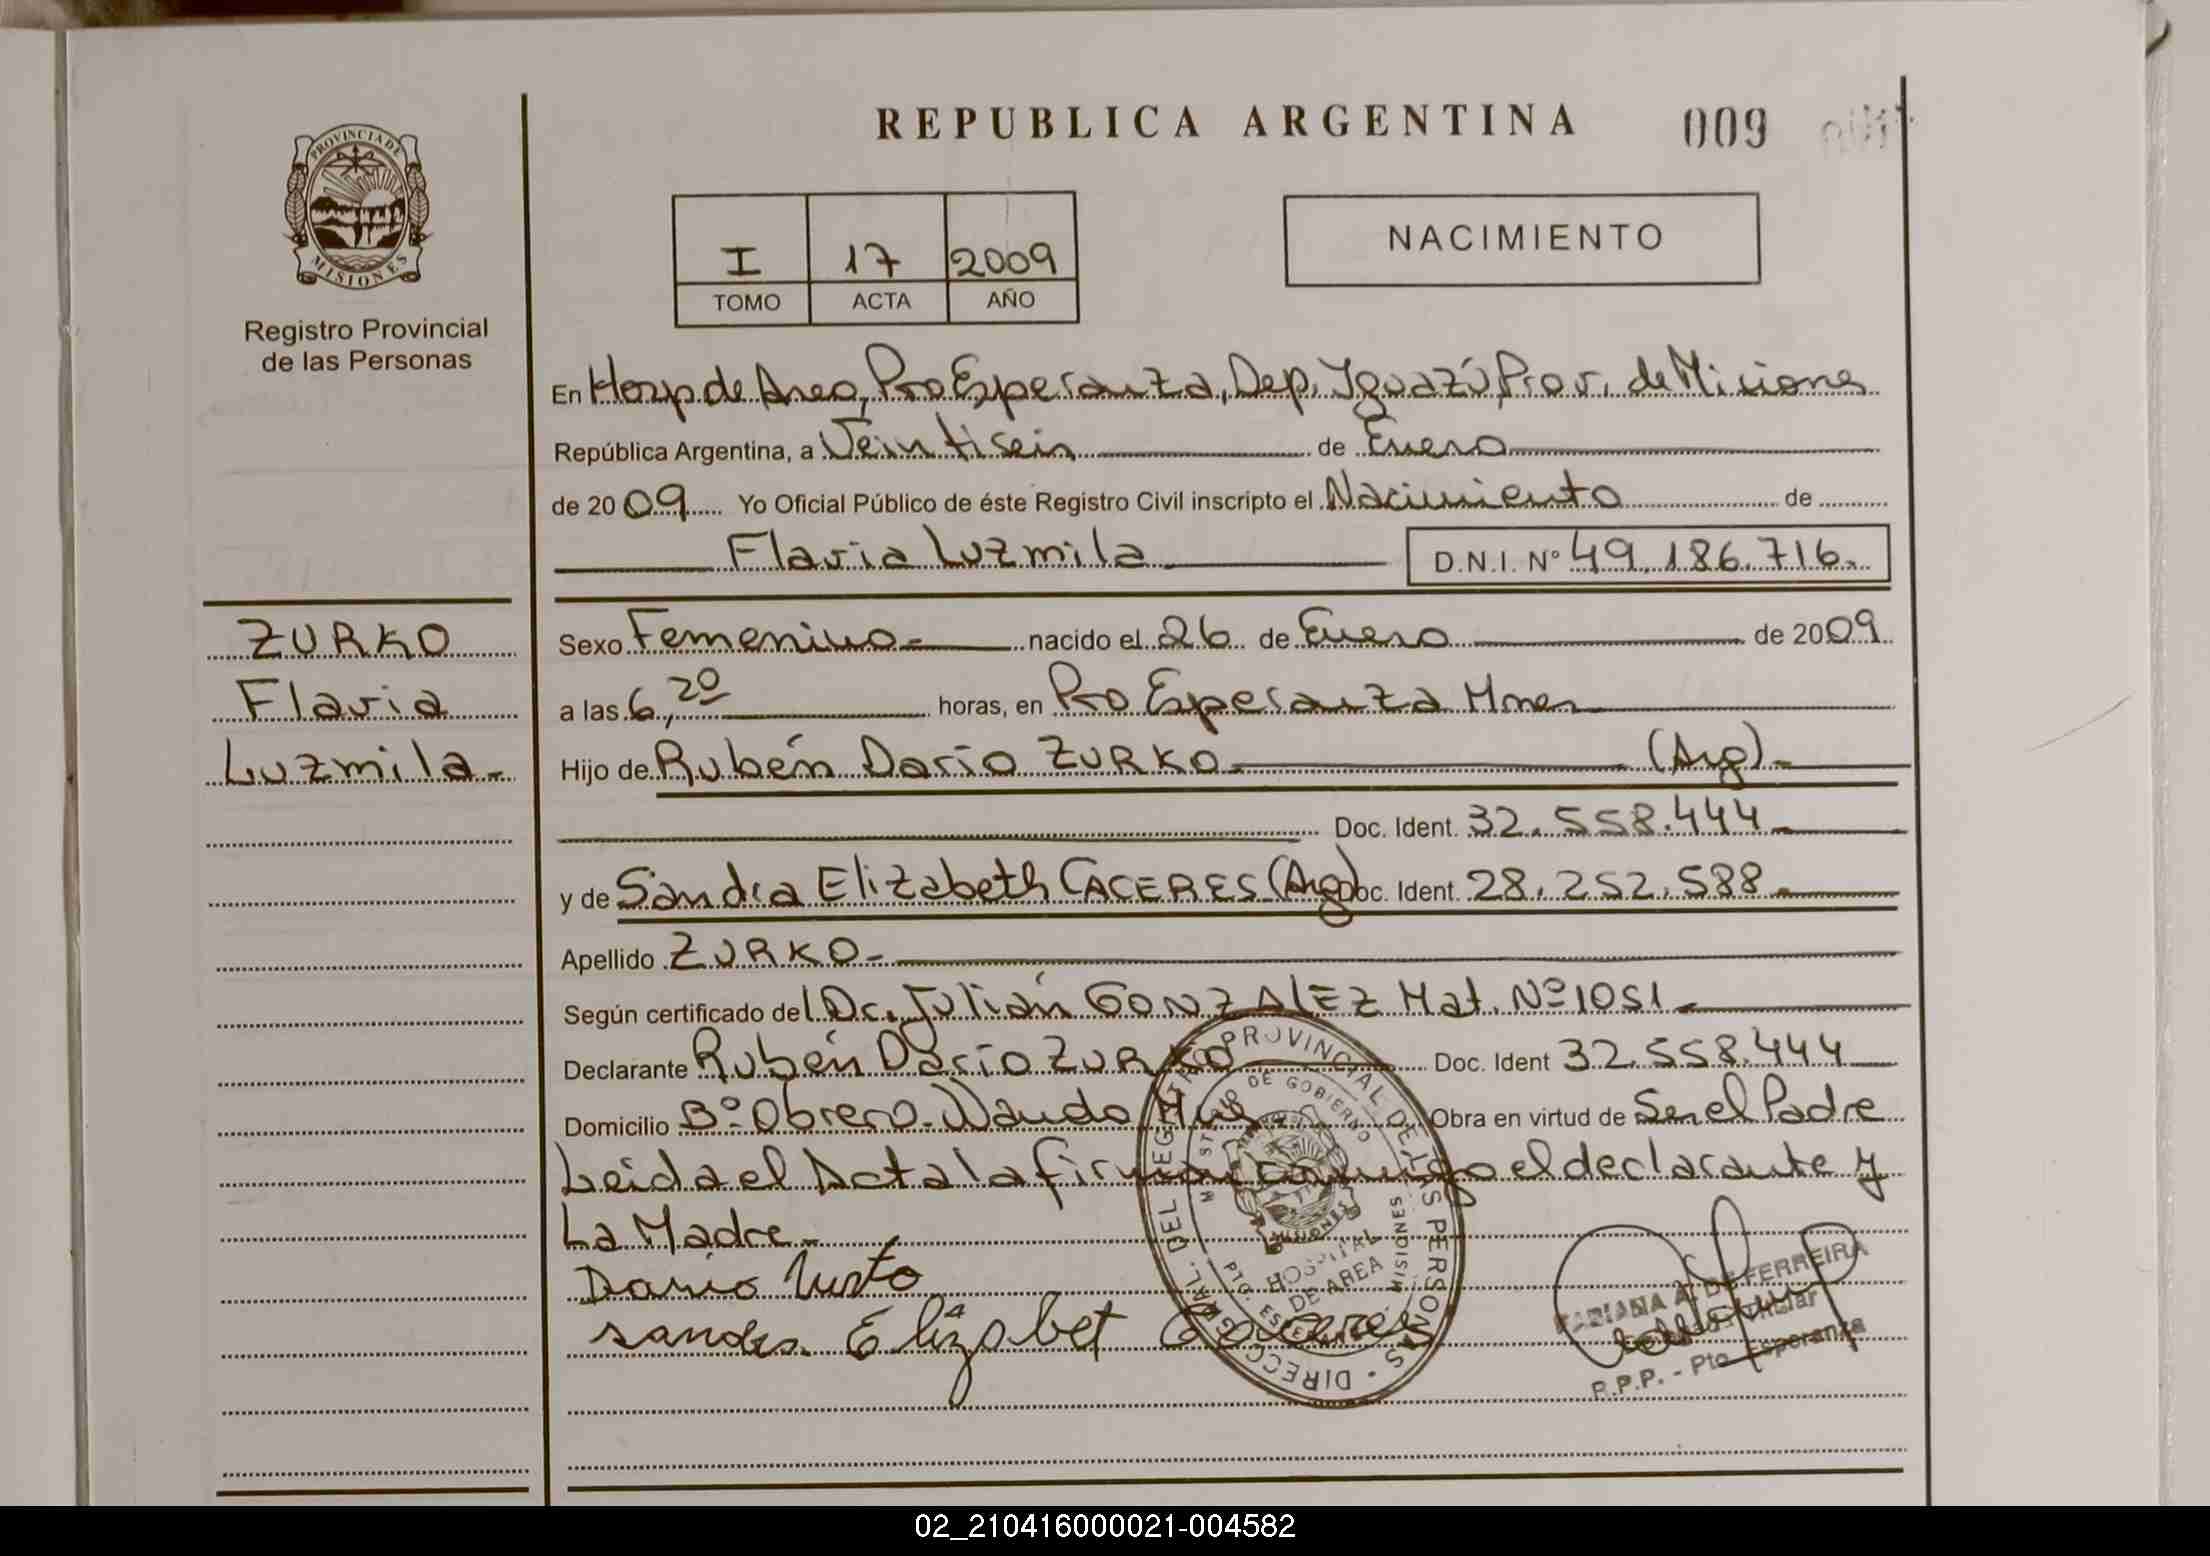 REPUBLICA ARGENTINA 009
PROVINCIA DE
MISIONES
Registro Provincial
de las Personas
I 17 2009
TOMO ACTA AÑO
NACIMIENTO
En Hosp de Area, Pto Esperanza, Dep. Iguazú, Prov. de Misiones
República Argentina, a Veintiseis de Enero
de 2009 Yo Oficial Público de éste Registro Civil inscripto el Nacimiento de
Flavia Luzmila D.N.I. Nº 49.186.716.
ZURKO
Flavia
Luzmila.-
Sexo Femenino.- nacido el 26 de Enero de 2009
a las 6,20 horas, en Pto Esperanza Mnes
Hijo de Rubén Dario ZURKO (Arg).-
Doc. Ident. 32.558.444.-
y de Sandra Elizabeth CACERES (Arg) Doc. Ident. 28.252.588.-
Apellido ZURKO.-
Según certificado del Dr. Julián GONZALEZ Mat. Nº 1051.-
Declarante Rubén Darío ZURKO Doc. Ident 32.558.444
Domicilio Bº Obrero. Wanda Mnes Obra en virtud de Ser el Padre
Leida el Acta la firman conmigo el declarante y
La Madre.-
Dario
sandra Elizabet Caceres
DIRECC GRAL. DEL REGISTRO PROVINCIAL DE LAS PERSONAS
DE GOBIERNO
MISIONES
HOSPITAL
DE AREA
PTO. ESPERANZA
MISIONES
FABIANA A. DE FERREIRA
Titular
R.P.P. - Pto. Esperanza
02_210416000021-004582